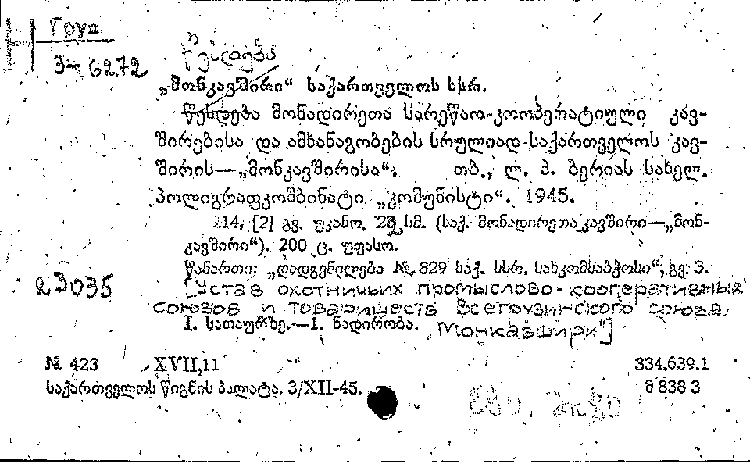 Н Груз
3-6272
წესდება
„მონკავშირი“ საქართველოს სსრ.
წესდება მონადირეთა სარეწაო-კოოპერატიული კავ-
შირებისა და ამხანაგობების სრულიად-საქართველოს კავ-
შირის—„მონკავშირისა“. თბ., ლ. პ. ბერიას სახელ.
პოლიგრაფკომბინატი „კომუნისტი“. 1945.
14, [2] გვ. უკანო. 20 სმ. (საქ. მონადირეთა კავშირი—„მონ-
კავშირი“). 200 ც. უფასო.
წანართი: „დადგენილება № 829 საქ. სსრ. სახკომსაბჭოსი“, გვ. 3.
23035
[Устав охотничьих промыслово-кооперативных
союзов и товариществ Всегрузинского союза
I. სათაურზე.—1. ნადირობა. „Монкавшири"]
№ 423 XVII,11 334.639.1
საქართველოს წიგნის პალატა. 3/XII-45. 8 838 3